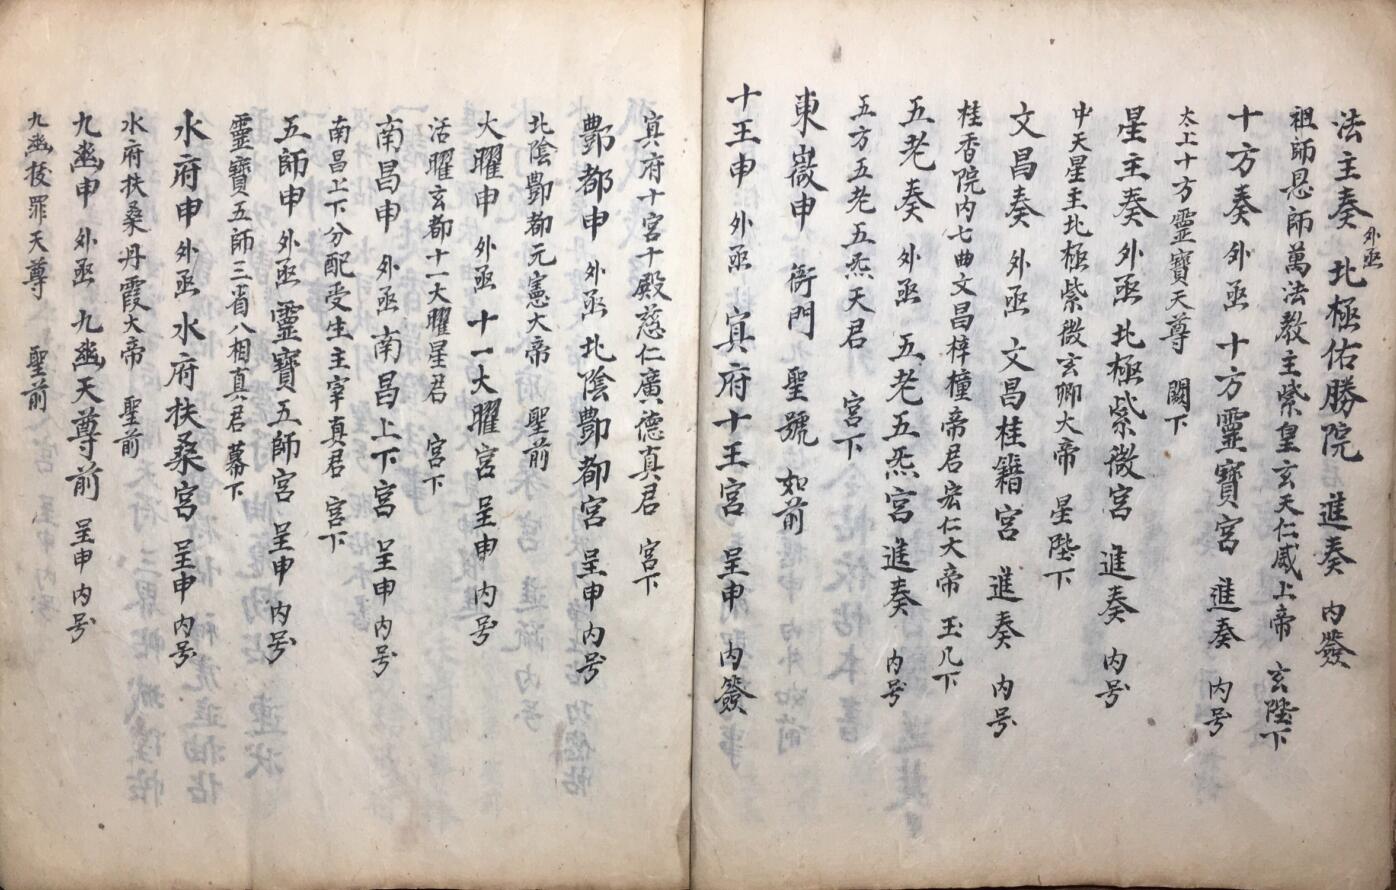 法主奏 外函 北極佑勝院 進奏 內簽
祖師恩師萬法教主紫皇玄天仁威上帝 玄陛下
十方奏 外函 十方靈寶宮 進奏 內号
太上十方靈寶天尊 闕下
星主奏 外函 北極紫微宮 進奏 內号
中天星主北極紫微玄卿大帝 星陛下
文昌奏 外函 文昌桂籍宮 進奏 內号
桂香院內七曲文昌梓橦帝君宏仁大帝 玉几下
五老奏 外函 五老五炁宮 進奏 內号
五方五老五炁天君 宮下
東嶽申 衙門 聖號 如前
十王申 外函 冥府十王宮 呈申 內簽
冥府十宮十殿慈仁廣德真君 宮下
酆都申 外函 北陰酆都宮 呈申 內号
北陰酆都元憲大帝 聖前
大曜申 外函 十一大曜宮 呈申 內号
活曜玄都十一大曜星君 宮下
南昌申 外函 南昌上下宮 呈申 內号
南昌上下分配受生主宰真君 宮下
五師申 外函 靈寶五師宮 呈申 內号
靈寶五師三省八相真君 幕下
水府申 外函 水府扶桑宮 呈申 內号
水府扶桑丹霞大帝 聖前
九幽申 外函 九幽天尊前 呈申 內号
九幽拔罪天尊 聖前